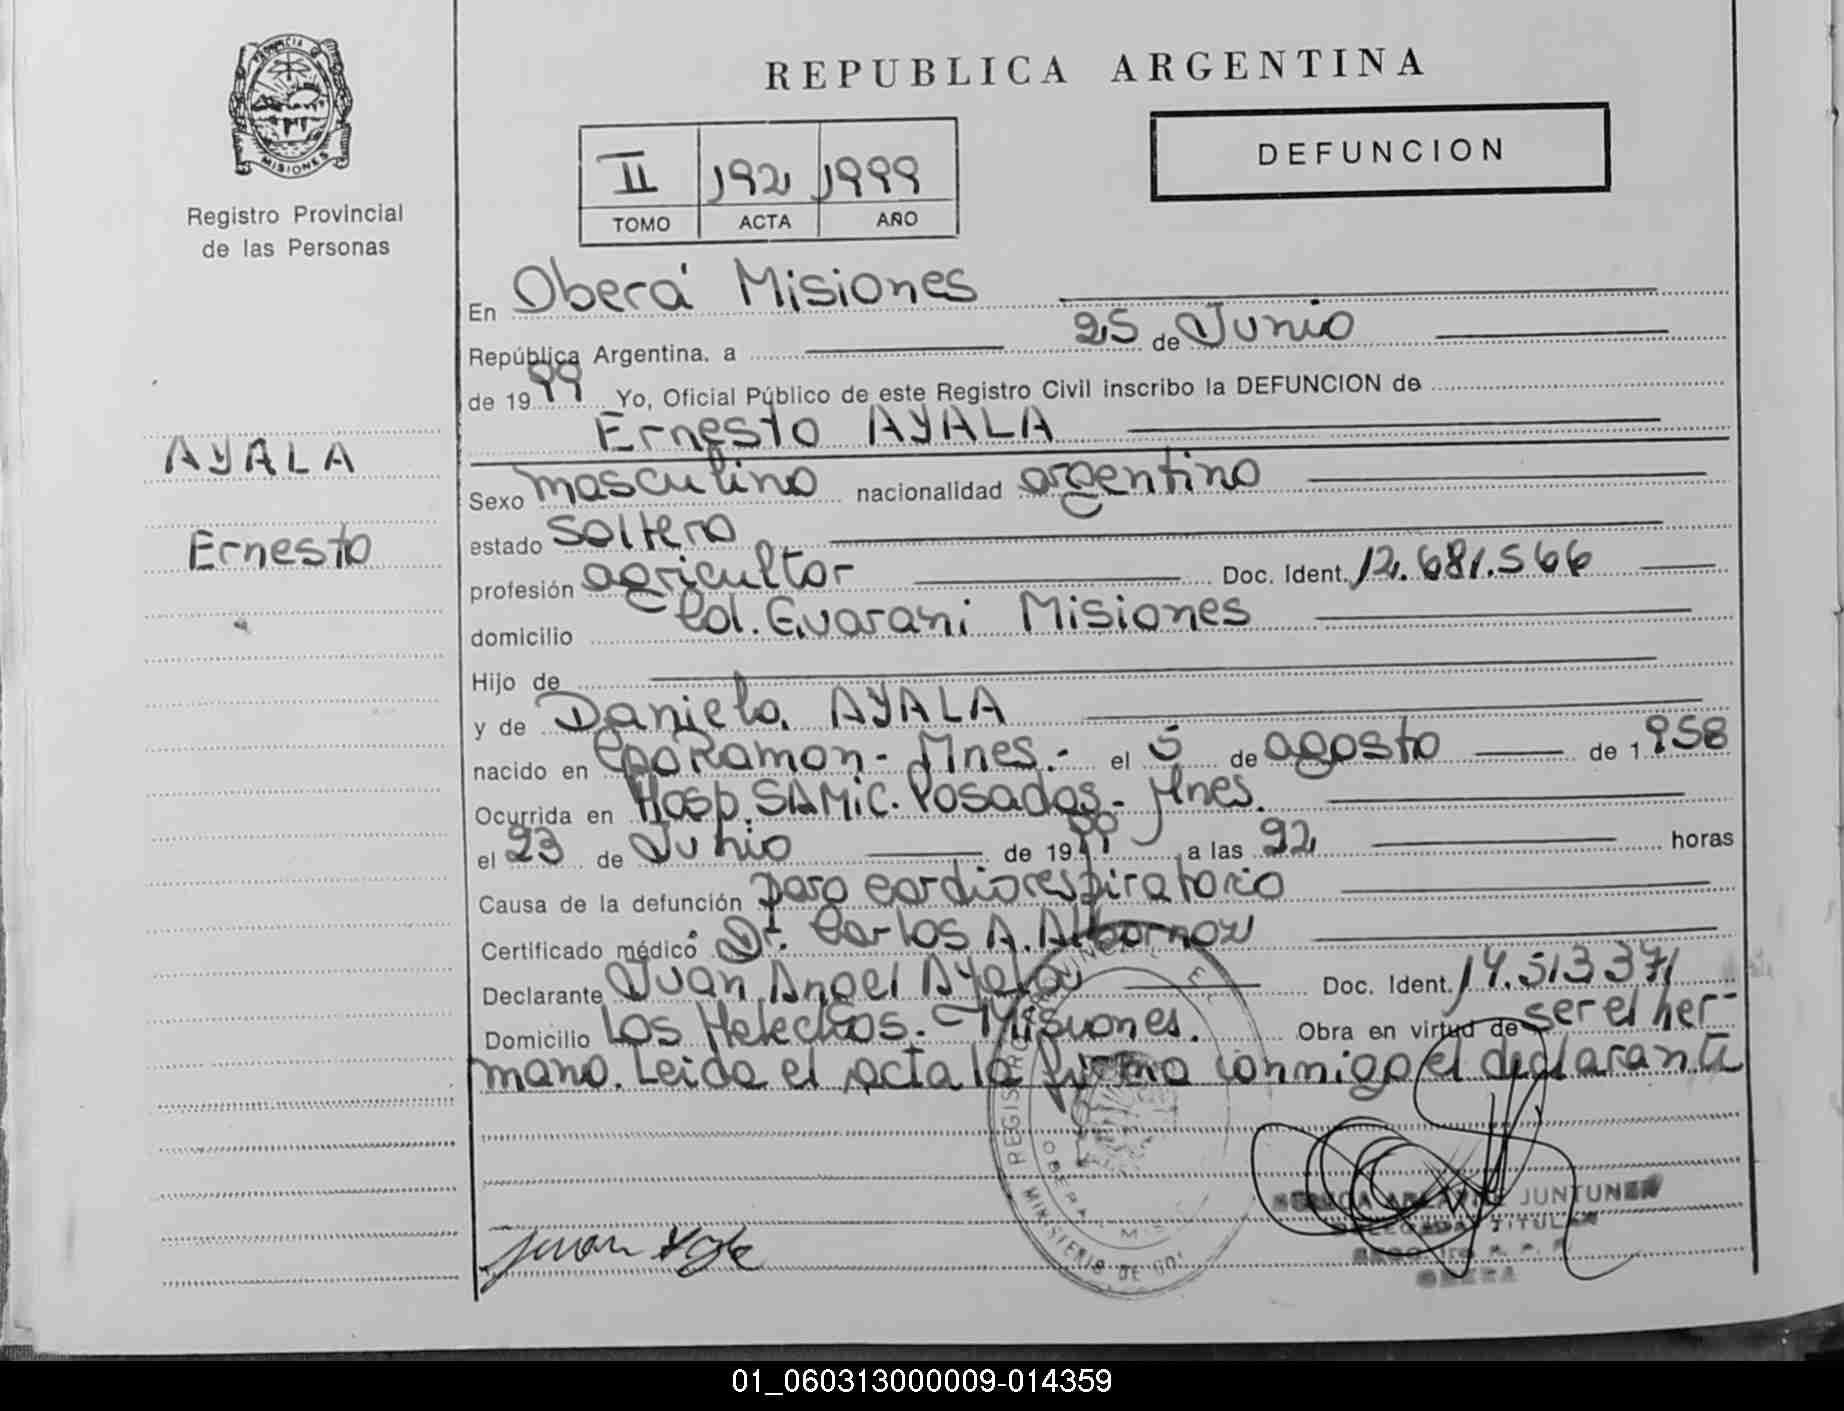 PROVINCIA DE
MISIONES
Registro Provincial
de las Personas
REPUBLICA ARGENTINA
II 192 1999
TOMO ACTA AÑO
DEFUNCION
AYALA
Ernesto
En Oberá Misiones
República Argentina, a 25 de Junio
de 1999 Yo, Oficial Público de este Registro Civil inscribo la DEFUNCION de
Ernesto AYALA
Sexo masculino nacionalidad argentino
estado soltero
profesión agricultor Doc. Ident. 12.681.566
domicilio Col. Guarani Misiones
Hijo de
y de Daniela AYALA
nacido en Cpo Ramon - Mnes.- el 5 de agosto de 1958
Ocurrida en Hosp. SAMIC. Posadas - Mnes.
el 23 de Junio de 1999 a las 22 horas
Causa de la defunción paro cardiorespiratorio
Certificado médico Dr. Carlos A. Albornoz
Declarante Juan Angel Ayala Doc. Ident. 14.513371
Domicilio Los Helechos. - Misiones. Obra en virtud de ser el her-
mano. Leida el acta la firma conmigo el declarante
REGISTRO PROVINCIAL
OBERA - MIS
MINISTERIO DE GO
JUNTUNEN
TITULAR
OBERA
Juan Ayala
01_060313000009-014359